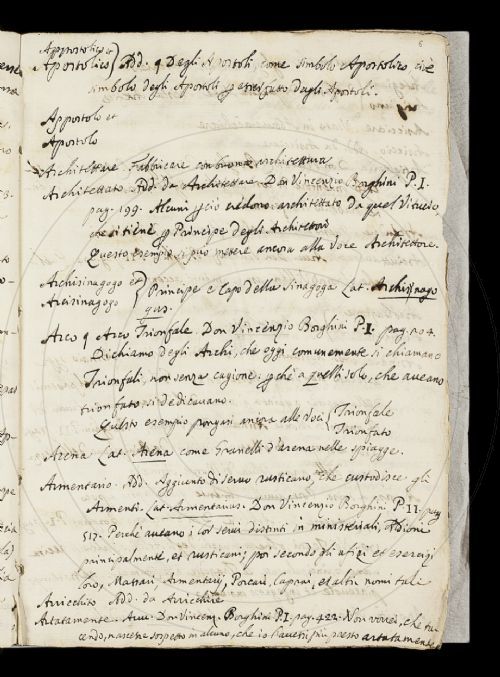 6
Appostolico et
Apostolico } Add. q Degli Apostoli, come simbolo Apostolico, cioè
simbolo degli Apostoli dagli Apostoli.
Appostolo et
Apostolo
Architettare. Fabbricare con buona architettura
Architettato. Add. da Architettare. Don Vincenzio Borghini P. I.
pag. 199. Alcuni credono architettato da quel Vitruvio
che si tiene Principe degli Architettori
Questo esempio si può mettere ancora alla Voce Architettore.
Archisinagogo et
Arcisinagogo } Principe e Capo della Sinagoga Lat. Archisynago
gus.
Arco q Arco Trionfale. Don Vincenzio Borghini P. I. pag. 204.
Dichiamo degli Archi, che oggi comunemente si chiamano
Trionfali, non senza cagione. che a quelli solo, che aveano
trionfato si dedicavano.
Questo esempio ancora alle Voci { Trionfale
Trionfato
Arena Lat. Arena come Granelli d'arena nelle spiagge.
Armentario. Add. Aggiunto di servo rusticano, che custodisce gli
Armenti. Lat. Armentarius. Don Vincenzio Borghini P. II. pag.
517. Perchè aveano i lor servi distinti in ministeriali,
principalmente, et rusticani; poi secondo gli ufizi et esercizi
loro, Armentarij, Porcari, Caprai, et altri nomi tali
Arricchito Add. da Arricchire
Artatamente. Avv. Don Vincenz. Borghini P. I. pag. 422. Non vorrei, che ta
cendo, nascesse sospetto in alcuno, che io l'avessi, più presto artatamente